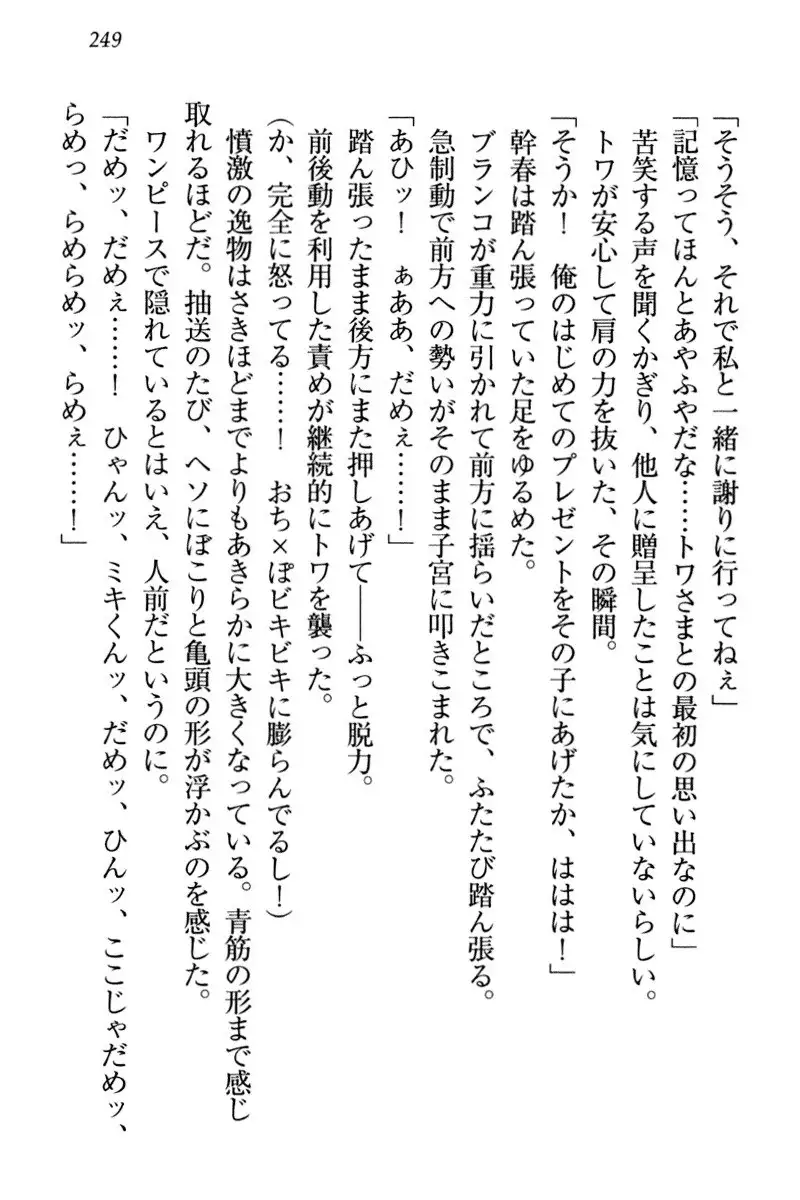 249
「そうそう、それで私と一緒に謝りに行ってねぇ」
「記憶ってほんとあやふやだな……トワさまとの最初の思い出なのに」
苦笑する声を聞くかぎり、他人に贈呈したことは気にしていないらしい。
トワが安心して肩の力を抜いた、その瞬間。
「そうか！　俺のはじめてのプレゼントをその子にあげたか、ははは！」
幹春は踏ん張っていた足をゆるめた。
ブランコが重力に引かれて前方に揺らいだところで、ふたたび踏ん張る。
急制動で前方への勢いがそのまま子宮に叩きこまれた。
「あひッ！　ぁああ、だめぇ……！」
踏ん張ったまま後方にまた押しあげて――ふっと脱力。
前後動を利用した責めが継続的にトワを襲った。
（か、完全に怒ってる……！　おち×ぽビキビキに膨らんでるし！）
憤激の逸物はさきほどまでよりもあきらかに大きくなっている。青筋の形まで感じ
取れるほどだ。抽送のたび、ヘソにぽこりと亀頭の形が浮かぶのを感じた。
ワンピースで隠れているとはいえ、人前だというのに。
「だめッ、だめぇ……！　ひゃんッ、ミキくんッ、だめッ、ひんッ、ここじゃだめッ、
らめっ、らめらめッ、らめぇ……！」